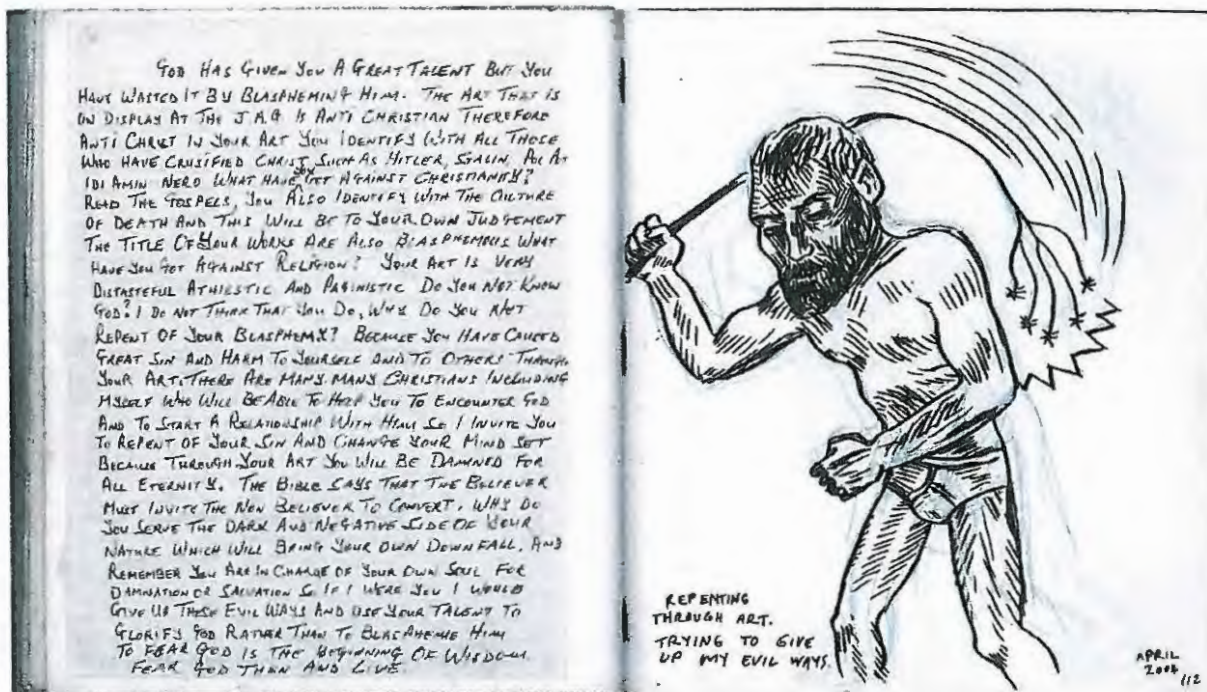 GOD HAS GIVEN YOU A GREAT TALENT BUT YOU
HAVE WASTED IT BY BLASPHEMING HIM. THE ART THAT IS
ON DISPLAY AT THE J.A.G IS ANTI CHRISTIAN THEREFORE
ANTI CHRIST IN YOUR ART YOU IDENTIFY WITH ALL THOSE
WHO HAVE CRUSIFIED CHRIST SUCH AS HITLER, STALIN, POL
IDI AMIN NERO WHAT HAVE YOU GOT AGAINST CHRISTIANITY?
READ THE GOSPELS, YOU ALSO IDENTIFY WITH THE CULTURE
OF DEATH AND THIS WILL BE TO YOUR OWN JUDGEMENT
THE TITLE OF YOUR WORKS ARE ALSO BLASPHEMOUS WHAT
HAVE YOU GOT AGAINST RELIGION? YOUR ART IS VERY
DISTASTEFUL ATHIESTIC AND PAGINISTIC DO YOU NOT KNOW
GOD? I DO NOT THINK THAT YOU DO, WHY DO YOU NOT
REPENT OF YOUR BLASPHEMY? BECAUSE YOU HAVE CAUSED
GREAT SIN AND HARM TO YOURSELF AND TO OTHERS THROUGH
YOUR ART. THERE ARE MANY. MANY CHRISTIANS INCLUDING
MYSELF WHO WILL BE ABLE TO HELP YOU TO ENCOUNTER GOD
AND TO START A RELATIONSHIP WITH HIM SO I INVITE YOU
TO REPENT OF YOUR SIN AND CHANGE YOUR MIND SET
BECAUSE THROUGH YOUR ART YOU WILL BE DAMNED FOR
ALL ETERNITY. THE BIBLE SAYS THAT THE BELIEVER
MUST INVITE THE NON BELIEVER TO CONVERT. WHY DO
YOU SERVE THE DARK AND NEGATIVE SIDE OF YOUR
NATURE WHICH WILL BRING YOUR OWN DOWNFALL, AND
REMEMBER YOU ARE IN CHARGE OF YOUR OWN SOUL FOR
DAMNATION OR SALVATION SO IF I WERE YOU I WOULD
GIVE UP THESE EVIL WAYS AND USE YOUR TALENT TO
GLORIFY GOD RATHER THAN TO BLASPHEME HIM
TO FEAR GOD IS THE BEGINNING OF WISDOM.
FEAR GOD THEN AND LIVE.
REPENTING
THROUGH ART.
TRYING TO GIVE
UP MY EVIL WAYS.
APRIL
112